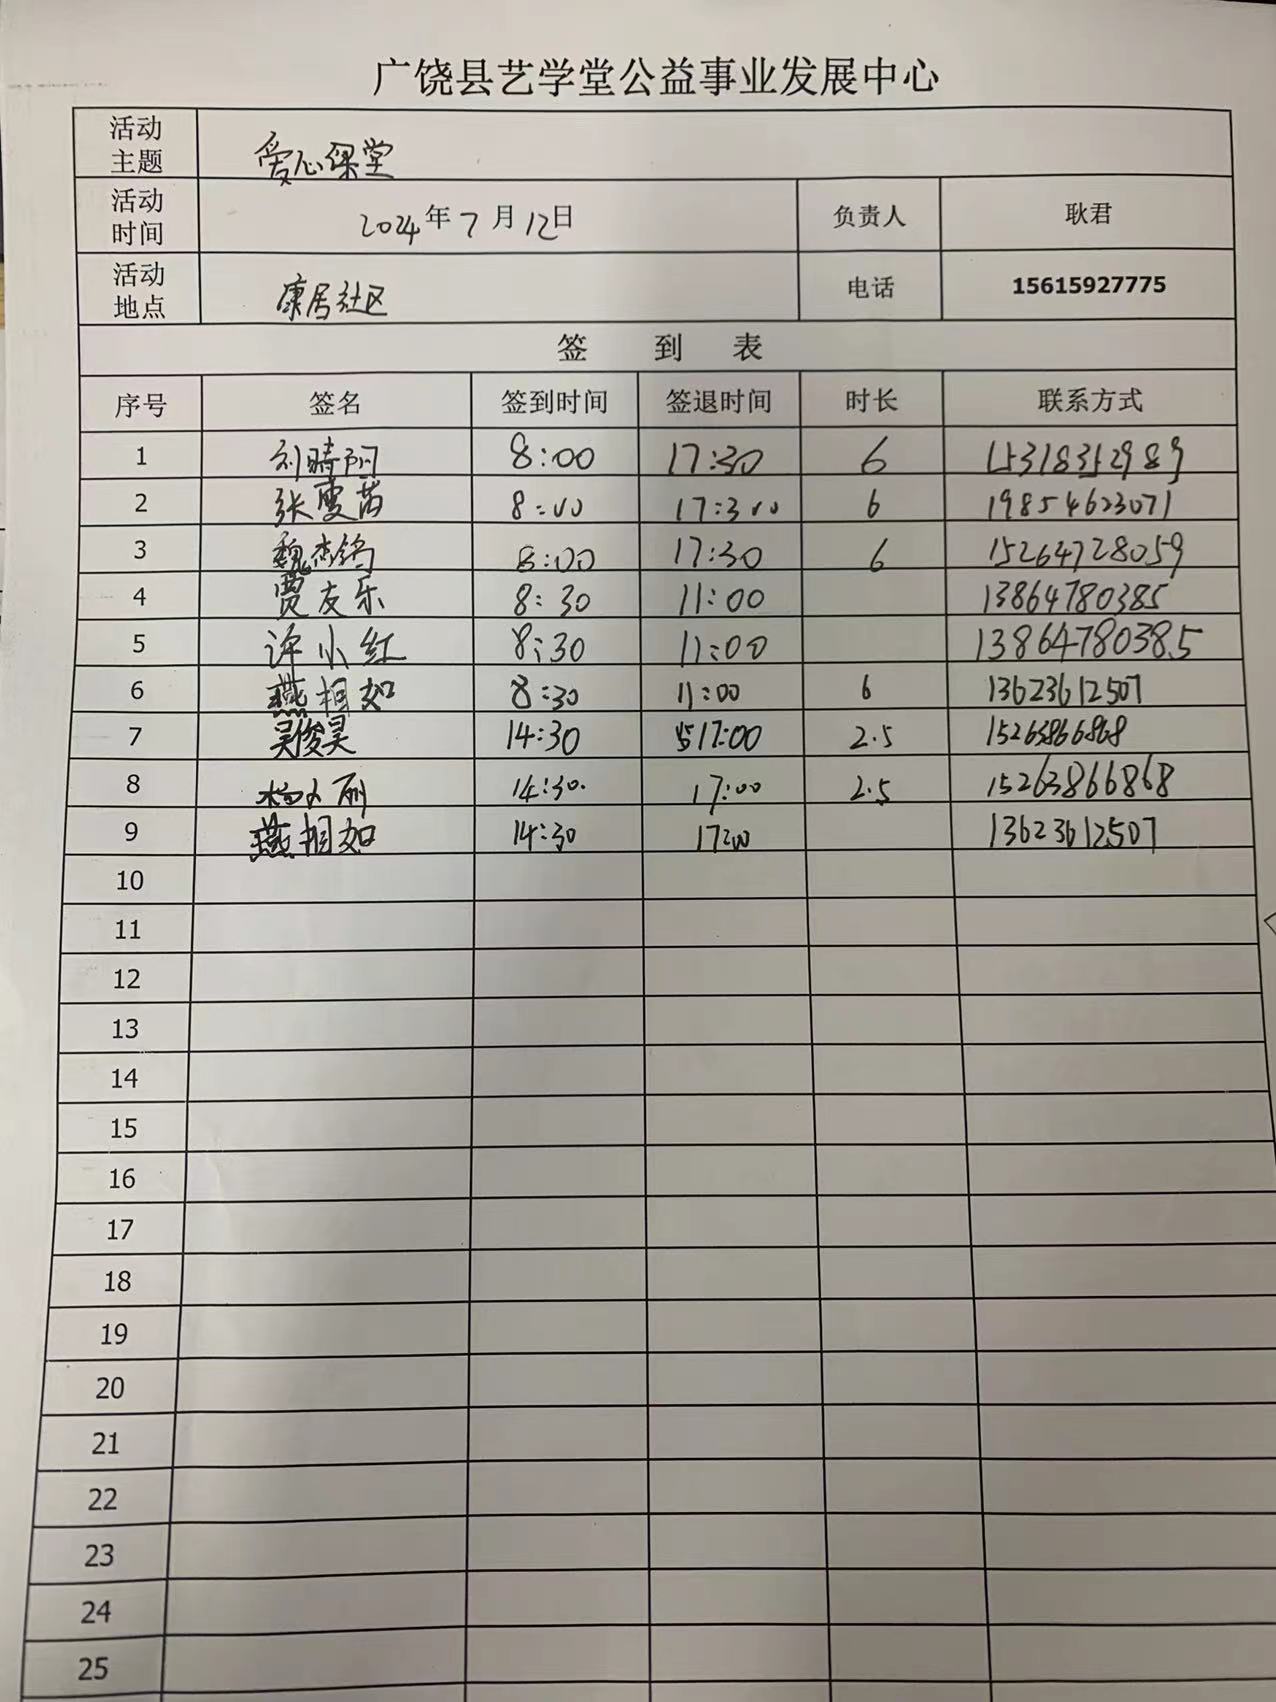 广饶县艺学堂公益事业发展中心
活动主题 爱心课堂
活动时间 2024年7月12日 负责人 耿君
活动地点 康居社区 电话 15615927775
签 到 表
序号 签名 签到时间 签退时间 时长 联系方式
1 刘晴阿 8:00 17:30 6 15318352989
2 张雯茜 8:00 17:30 6 19854623071
3 魏 8:00 17:30 6 15264728059
4 贾友乐 8:30 11:00 13864780385
5 许小红 8:30 11:00 13864780385
6 燕相如 8:30 11:00 6 13623612507
7 吴俊昊 14:30 17:00 2.5 15263866868
8 14:30. 17:00 2.5 15263866868
9 燕相如 14:30 17:00 13623612507
10
11
12
13
14
15
16
17
18
19
20
21
22
23
24
25